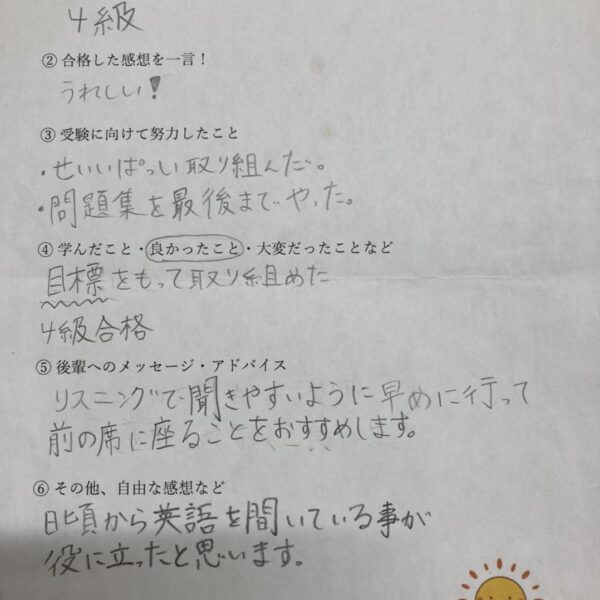 4級
② 合格した感想を一言！
うれしい！
③ 受験に向けて努力したこと
・せいいぱっい取り組んだ。
・問題集を最後までやった。
④ 学んだこと・良かったこと・大変だったことなど
目標をもって取り組めた
4級合格
⑤ 後輩へのメッセージ・アドバイス
リスニングで聞きやすいように早めに行って
前の席に座ることをおすすめします。
⑥ その他、自由な感想など
日頃から英語を聞いている事が
役に立ったと思います。